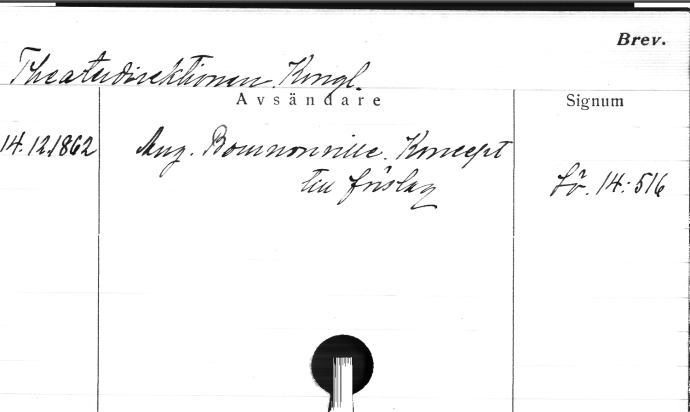 Brev.
Theaterdirektionen Kongl.
Avsändare
Signum
14.12.1862
Aug. Bournonville. Koncept
till förslag
Lö. 14:516